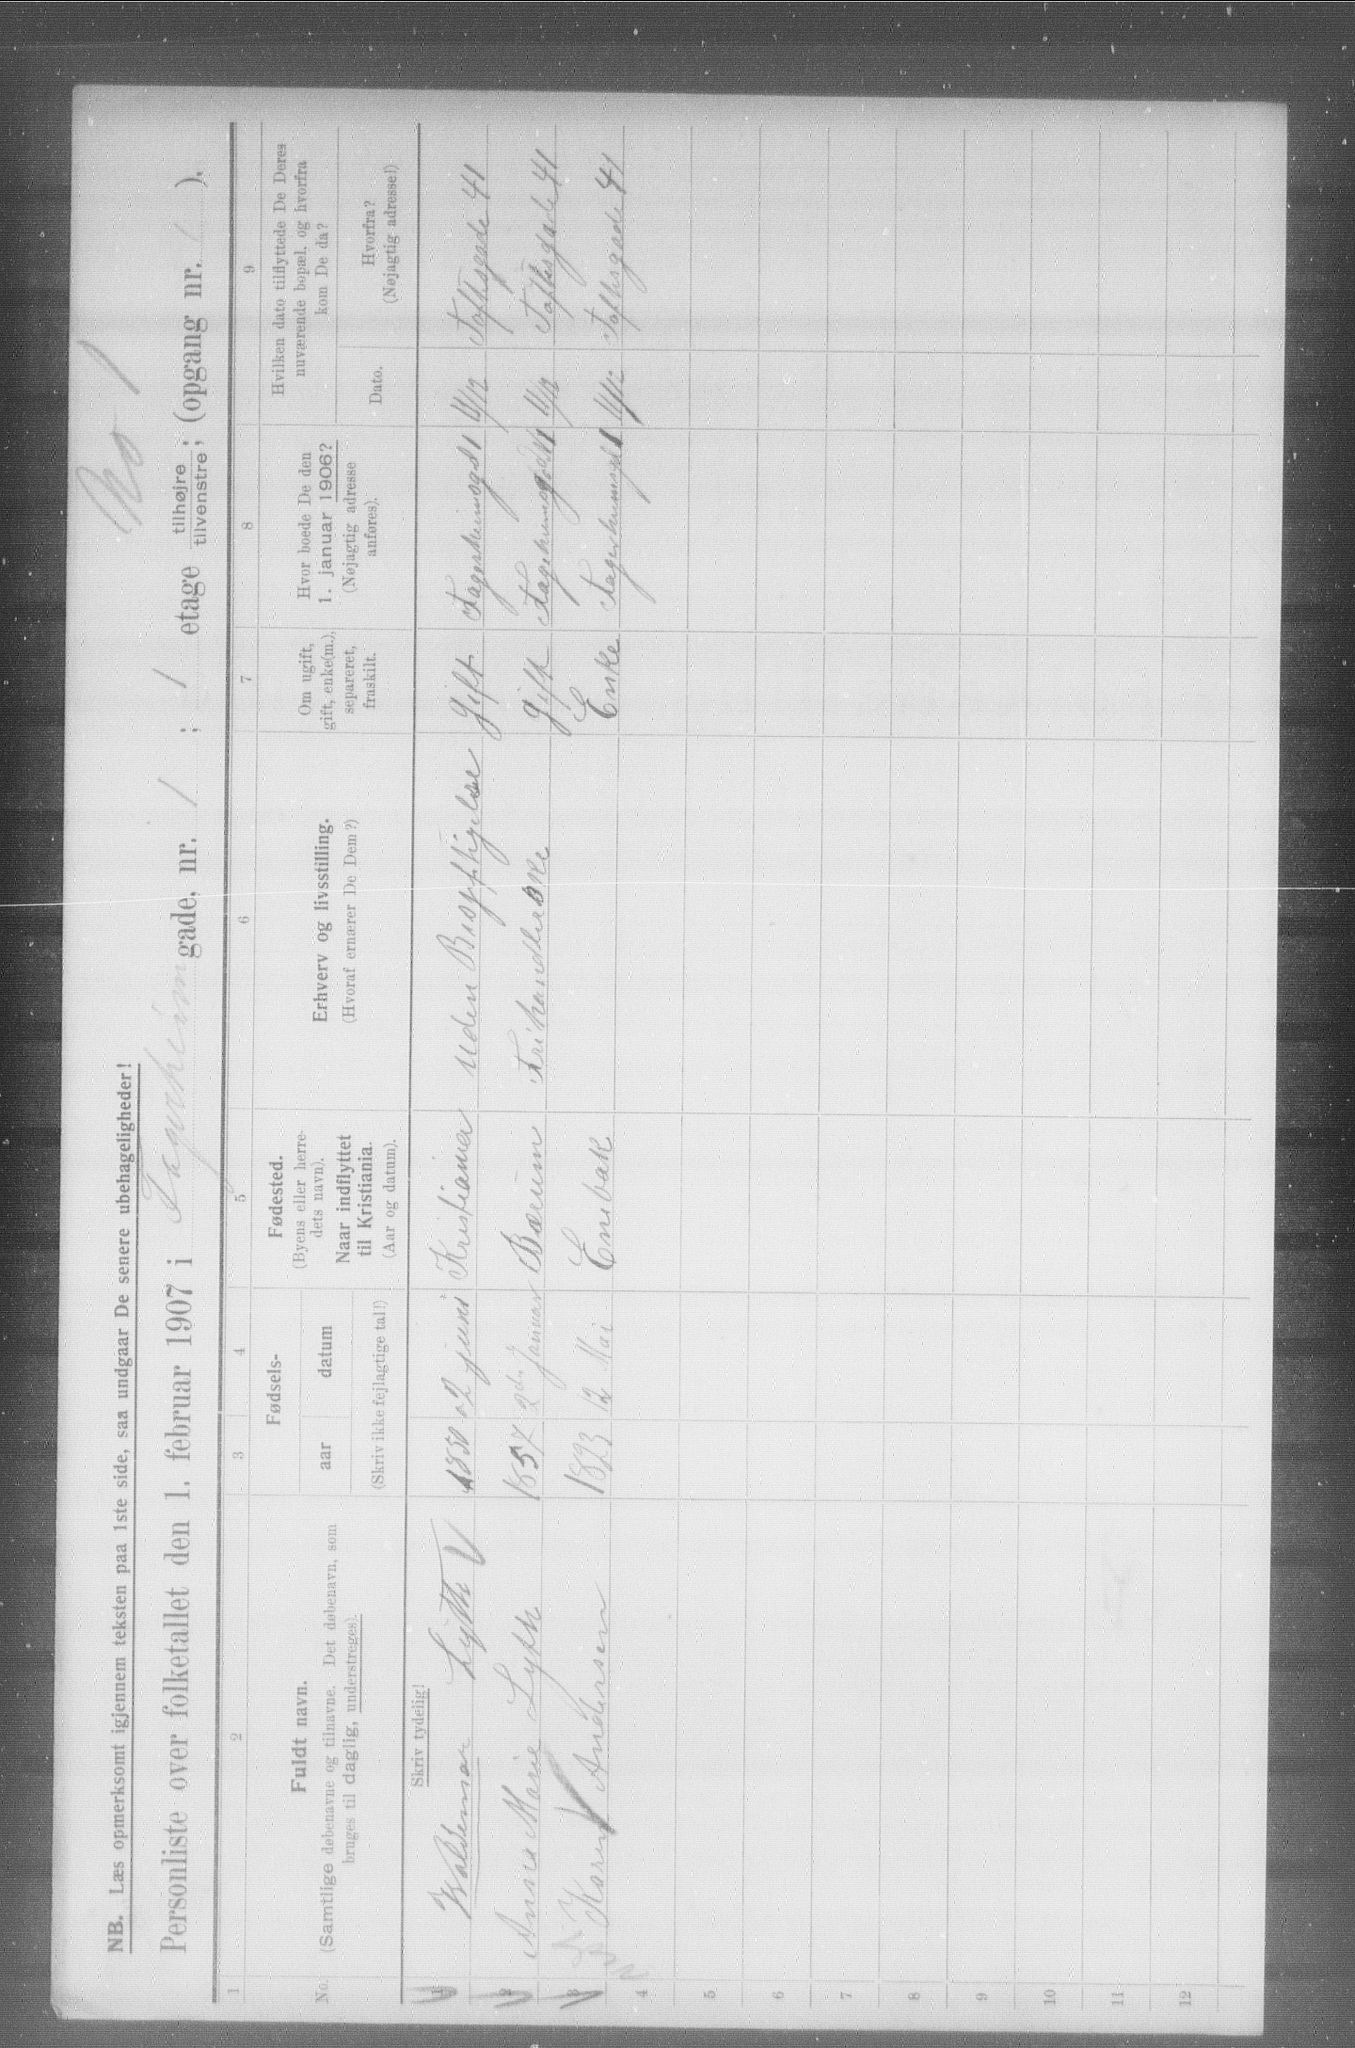 No 1
NB. Læs opmerksomt igjennem teksten paa 1ste side, saa undgaar De senere ubehageligheder!
Personliste over folketallet den 1. februar 1907 i Fagerheim gade, nr. 1 ; 1 etage tilhøjre tilvenstre; (opgang nr. 1 ).
1 2 3 4 5 6 7 8 9
No.
Fuldt navn.
(Samtlige døbenavne og tilnavne. Det døbenavn, som
bruges til daglig, understreges).
Fødsels-
aar datum
(Skriv ikke fejlagtige tal!)
Fødested.
(Byens eller herre-
dets navn).
Naar indflyttet
til Kristiania.
(Aar og datum).
Erhverv og livsstilling.
(Hvoraf ernærer De Dem?)
Om ugift,
gift, enke(m.),
separeret,
fraskilt.
Hvor boede De den
1. januar 1906?
(Nøjagtig adresse
anføres).
Hvilken dato tilflyttede De Deres
nuværende bopæl, og hvorfra
kom De da?
Dato.
Hvorfra?
(Nøjagtig adresse!)
Skriv tydelig!
1 Waldemar 1850 2 juni Kristiania uden Gift Toftesgade 41
2 Anna Marie 1857 2den Januar Bærum gift Toftesgade 41
3 Karen Andersen 1823 12 Mai Enebak Enke Toftesgade 41
4
5
6
7
8
9
10
11
12